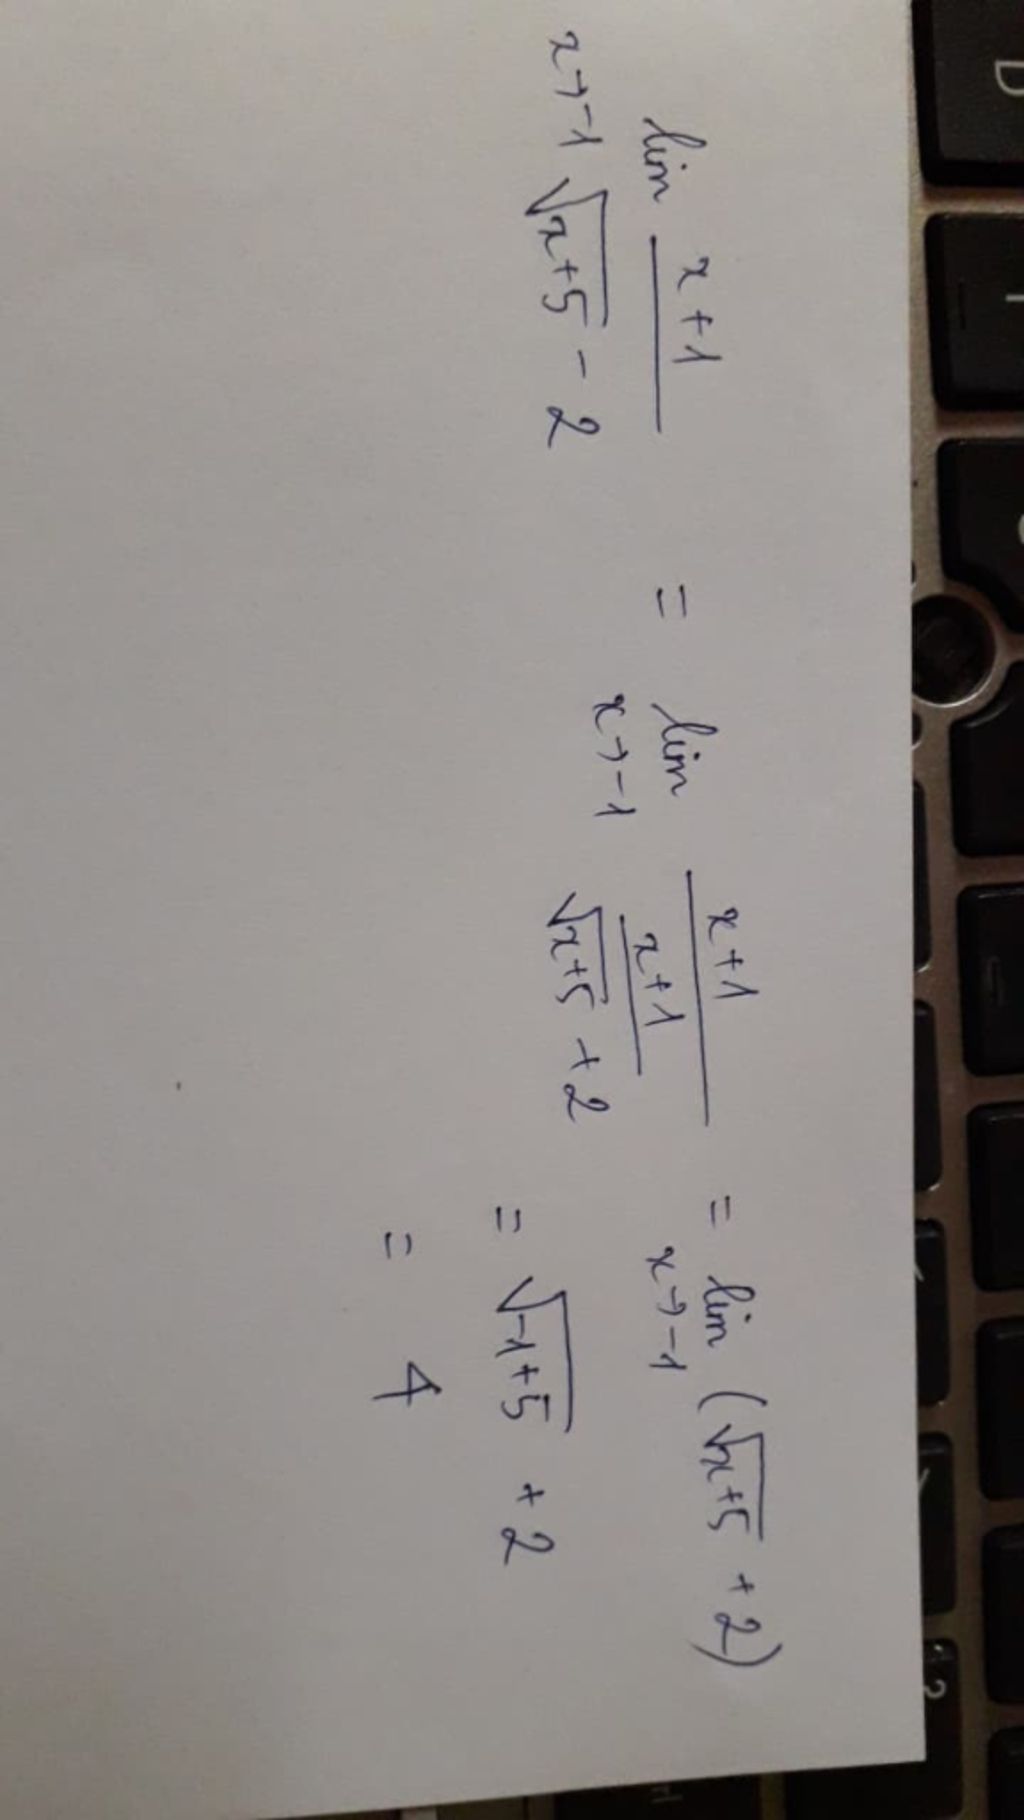 lim x→-1 (x+1)/(√(x+5) - 2) = lim x→-1 (x+1)/((x+1)/(√(x+5) + 2)) = lim x→-1 (√(x+5) + 2)
= √(-1+5) + 2
= 4